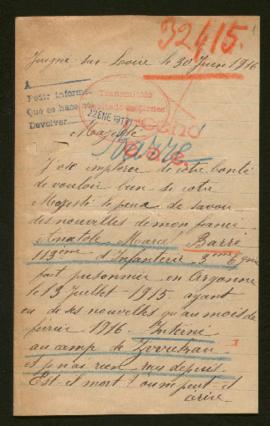 32415.
Juigné-sur-Loire le 30 Juin 1916
A
Pedir informe
Que se hace
Devolver
22 ENE 1917
Majesté
J'ose implorer de votre bonté
de vouloir bien si votre
Majesté le peut de savoir
des nouvelles de mon fiancé
Anatole Marie Barré
113ème d'Infanterie 3me Cgnie
fait prisonnier en Argonne
le 13 Juillet 1915 ayant
eu de ses nouvelles qu'au mois de
février 1916. Interné
au camp de
et je n'ai rien reçu depuis.
Est-il mort! ou ne peut-il